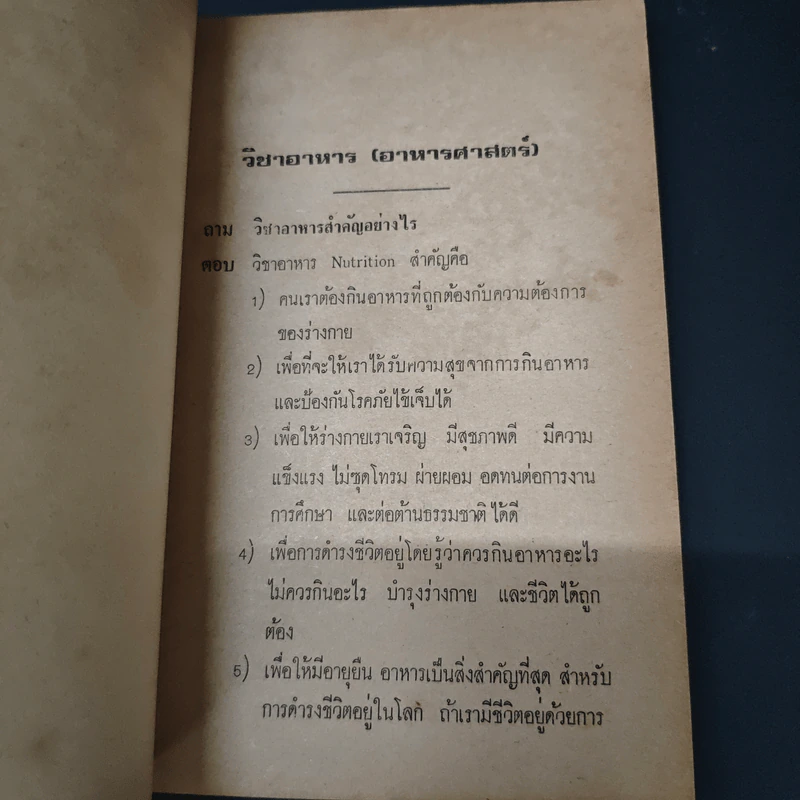 วิชาอาหาร (อาหารศาสตร์)
ถาม วิชาอาหารสำคัญอย่างไร
ตอบ วิชาอาหาร Nutrition สำคัญคือ
1) คนเราต้องกินอาหารที่ถูกต้องกับความต้องการ
ของร่างกาย
2) เพื่อที่จะให้เราได้รับความสุขจากการกินอาหาร
และป้องกันโรคภัยไข้เจ็บได้
3) เพื่อให้ร่างกายเราเจริญ มีสุขภาพดี มีความ
แข็งแรง ไม่ซุดโทรม ผ่ายผอม อดทนต่อการงาน
การศึกษา และต่อต้านธรรมชาติได้ดี
4) เพื่อการดำรงชีวิตอยู่โดยรู้ว่าควรกินอาหารอะไร
ไม่ควรกินอะไร บำรุงร่างกาย และชีวิตได้ถูก
ต้อง
5) เพื่อให้มีอายุยืน อาหารเป็นสิ่งสำคัญที่สุด สำหรับ
การดำรงชีวิตอยู่ในโลก ถ้าเรามีชีวิตอยู่ด้วยการ